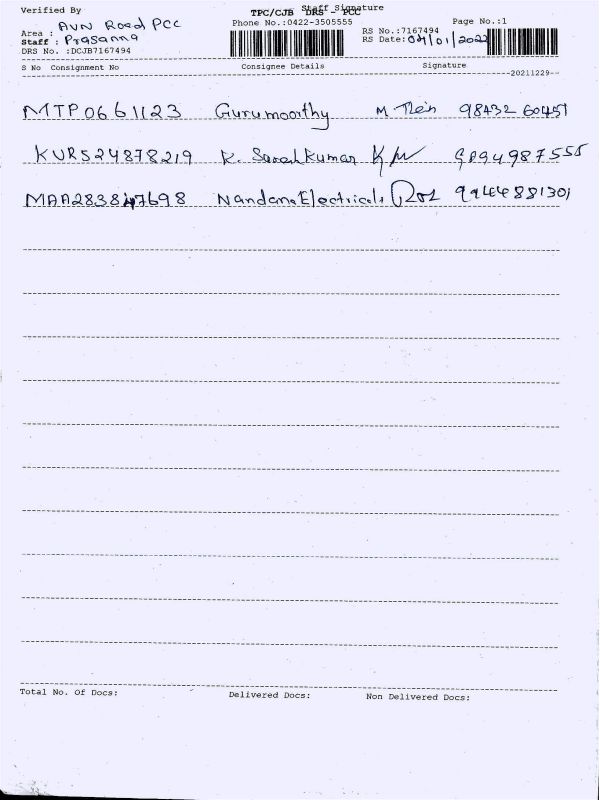 Verified By TPC/CJB DRS - PCC Staff Signature
Phone No.:0422-3505555 Page No.:1
Area : AVN Road PCC RS No.:7167494
Staff : Prasanna RS Date: /01/2022
DRS No. :DCJB7167494
S No Consignment No Consignee Details Signature
--20211229--
MTP0661123 Gurumoorthy 98432 60451
KUR524878219 K. Sarathkumar 9894987555
MAA283847698 Nandana Electricals 9944881301
Total No. Of Docs: Delivered Docs: Non Delivered Docs: